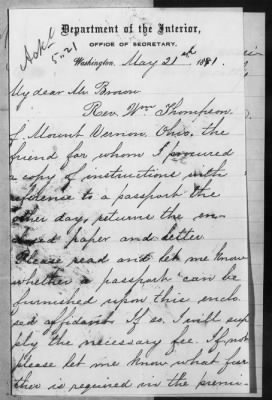 Ackd
5-21
Department of the Interior,
OFFICE OF SECRETARY,
Washington, May 21st 1881.
My dear Mr. Brown
Rev. Wm Thompson
of Mount Vernon, Ohio, the
friend for whom I procured
a copy of instructions with
reference to a passport the
other day, returns the en-
closed paper and letter
Please read and let me know
whether a passport can be
furnished upon this enclo
sed affidavit. If so, I will sup
ply the necessary fee. If not
please let me know what fur
ther is required in the premi-